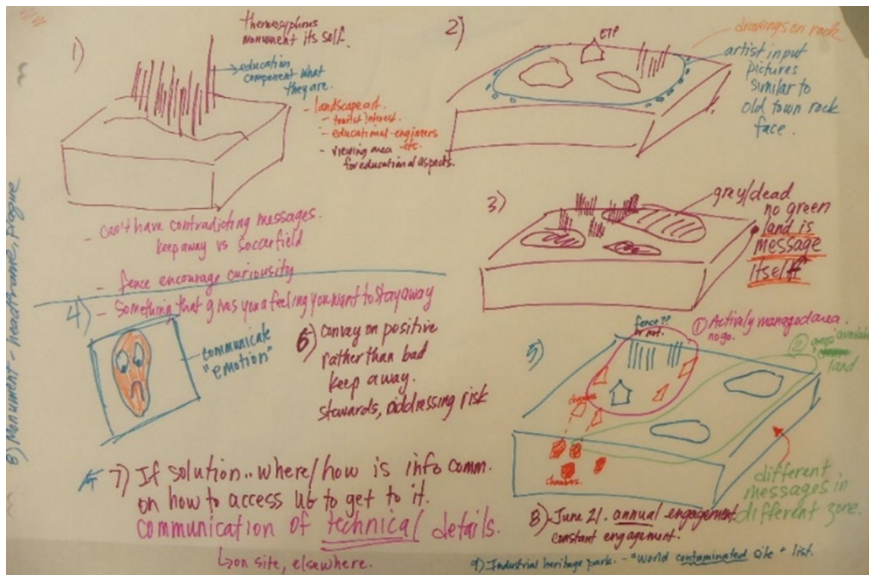 1)
thermosyphons
monument its self.
education
component what
they are.
- landscape art.
- tourist interest.
- educational - engineers
- viewing area etc.
for educational aspects.
- can't have contradicting messages.
keep away vs soccer field
- fence encourage curiousity
- Something that gives you a feeling you want to stay away
2)
ETP
drawings on rock
artist input
pictures
similar to
old town rock
face.
3)
grey/dead
no green
land is
message
itself
4)
communicate
"emotion"
6) Convey on positive
rather than bad
keep away.
stewards, addressing risk
5)
fence??
or not.
① Actively managed area
no go.
②
available
land
chambers.
different
messages in
different zone.
7) If solution.. where/how is info comm.
on how to access us to get to it.
communication of technical details.
↳ on site, elsewhere.
8) June 21. annual engagement
constant engagement.
9) Industrial heritage park. - "World contaminated site" list.
8) Monument - headframe, plaque